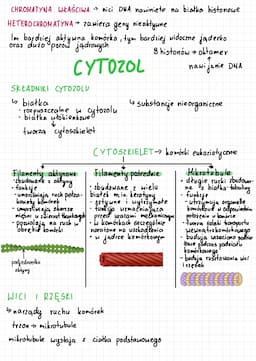 CHROMATYNA WŁAŚCIWA → nici DNA nawinięte na białka histonowe
HETEROCHROMATYNA → zawiera geny nieaktywne
Im bardziej aktywna komórka, tym bardziej widoczne jąderko
oraz dużo porów jądrowych
8 histonów → oktamer
nawijanie DNA
CYTOZOL
SKŁADNIKI CYTOZOLU
↳ białka
- rozpuszczalne w cytozolu
- białka włókienkowe
tworzą cytoszkielet
↳ substancje nieorganiczne
CYTOSZKIELET → komórki eukariotyczne
Filamenty aktynowe
- zbudowane z aktyny
- funkcje
- umożliwiają ruch
komórki
- pozwalają na ruch w
obrębie komórki
podjednostka
aktyny
Filamenty pośrednie
- zbudowane z wielu
białek m.in. keratyny
- sztywne i wytrzymałe
- funkcja wzmacniająca
przed urazami mechanicznymi
- w komórkach szczególnie
narażone na uszkodzenia
- w jądrze komórkowym
Mikrotubule
- długie rurki zbudowane
z białka tubuliny
- funkcje
- utrzymują organelle
komórkowe w odpowiednim
położeniu w komórce
- tworzą szlaki transportu
wewnątrzkomórkowego
- budują wrzeciono podziałowe
podczas podziału
komórkowego
- budują rusztowania wici
i rzęsek
WICI I RZĘSKI
↳ narządy ruchu komórek
trzon → mikrotubule
mikrotubule wystają z ciałka podstawowego